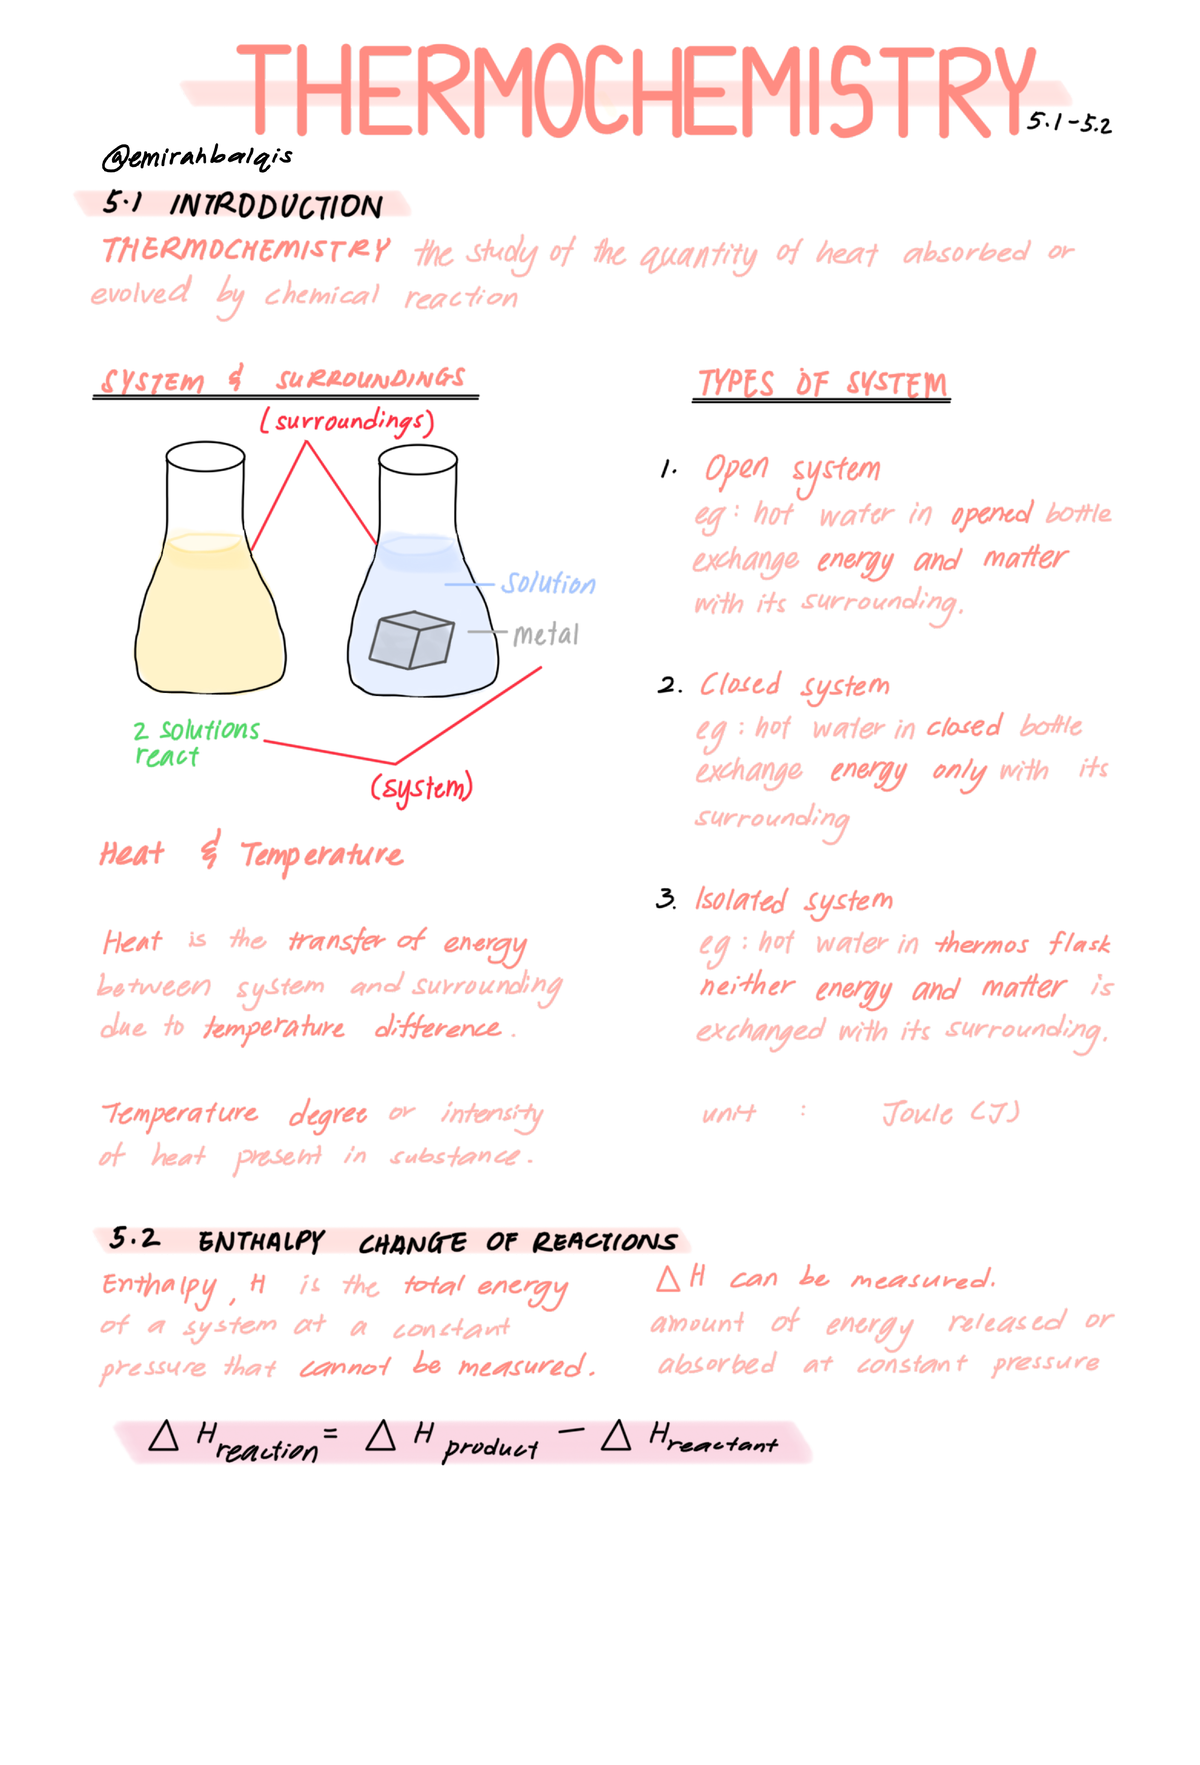 THERMOCHEMISTRY
5.1-5.2
@emirahbalqis
5.1 INTRODUCTION
THERMOCHEMISTRY the study of the quantity of heat absorbed or
evolved by chemical reaction
SYSTEM & SURROUNDINGS
(surroundings)
solution
metal
2 solutions
react
(system)
Heat & Temperature
Heat is the transfer of energy
between system and surrounding
due to temperature difference.
Temperature degree or intensity
of heat present in substance.
TYPES OF SYSTEM
1. Open system
eg : hot water in opened bottle
exchange energy and matter
with its surrounding.
2. Closed system
eg : hot water in closed bottle
exchange energy only with its
surrounding
3. Isolated system
eg : hot water in thermos flask
neither energy and matter is
exchanged with its surrounding.
unit : Joule (J)
5.2 ENTHALPY CHANGE OF REACTIONS
Enthalpy, H is the total energy
of a system at a constant
pressure that cannot be measured.
△ H can be measured.
amount of energy released or
absorbed at constant pressure
△ H reaction = △ H product - △ H reactant